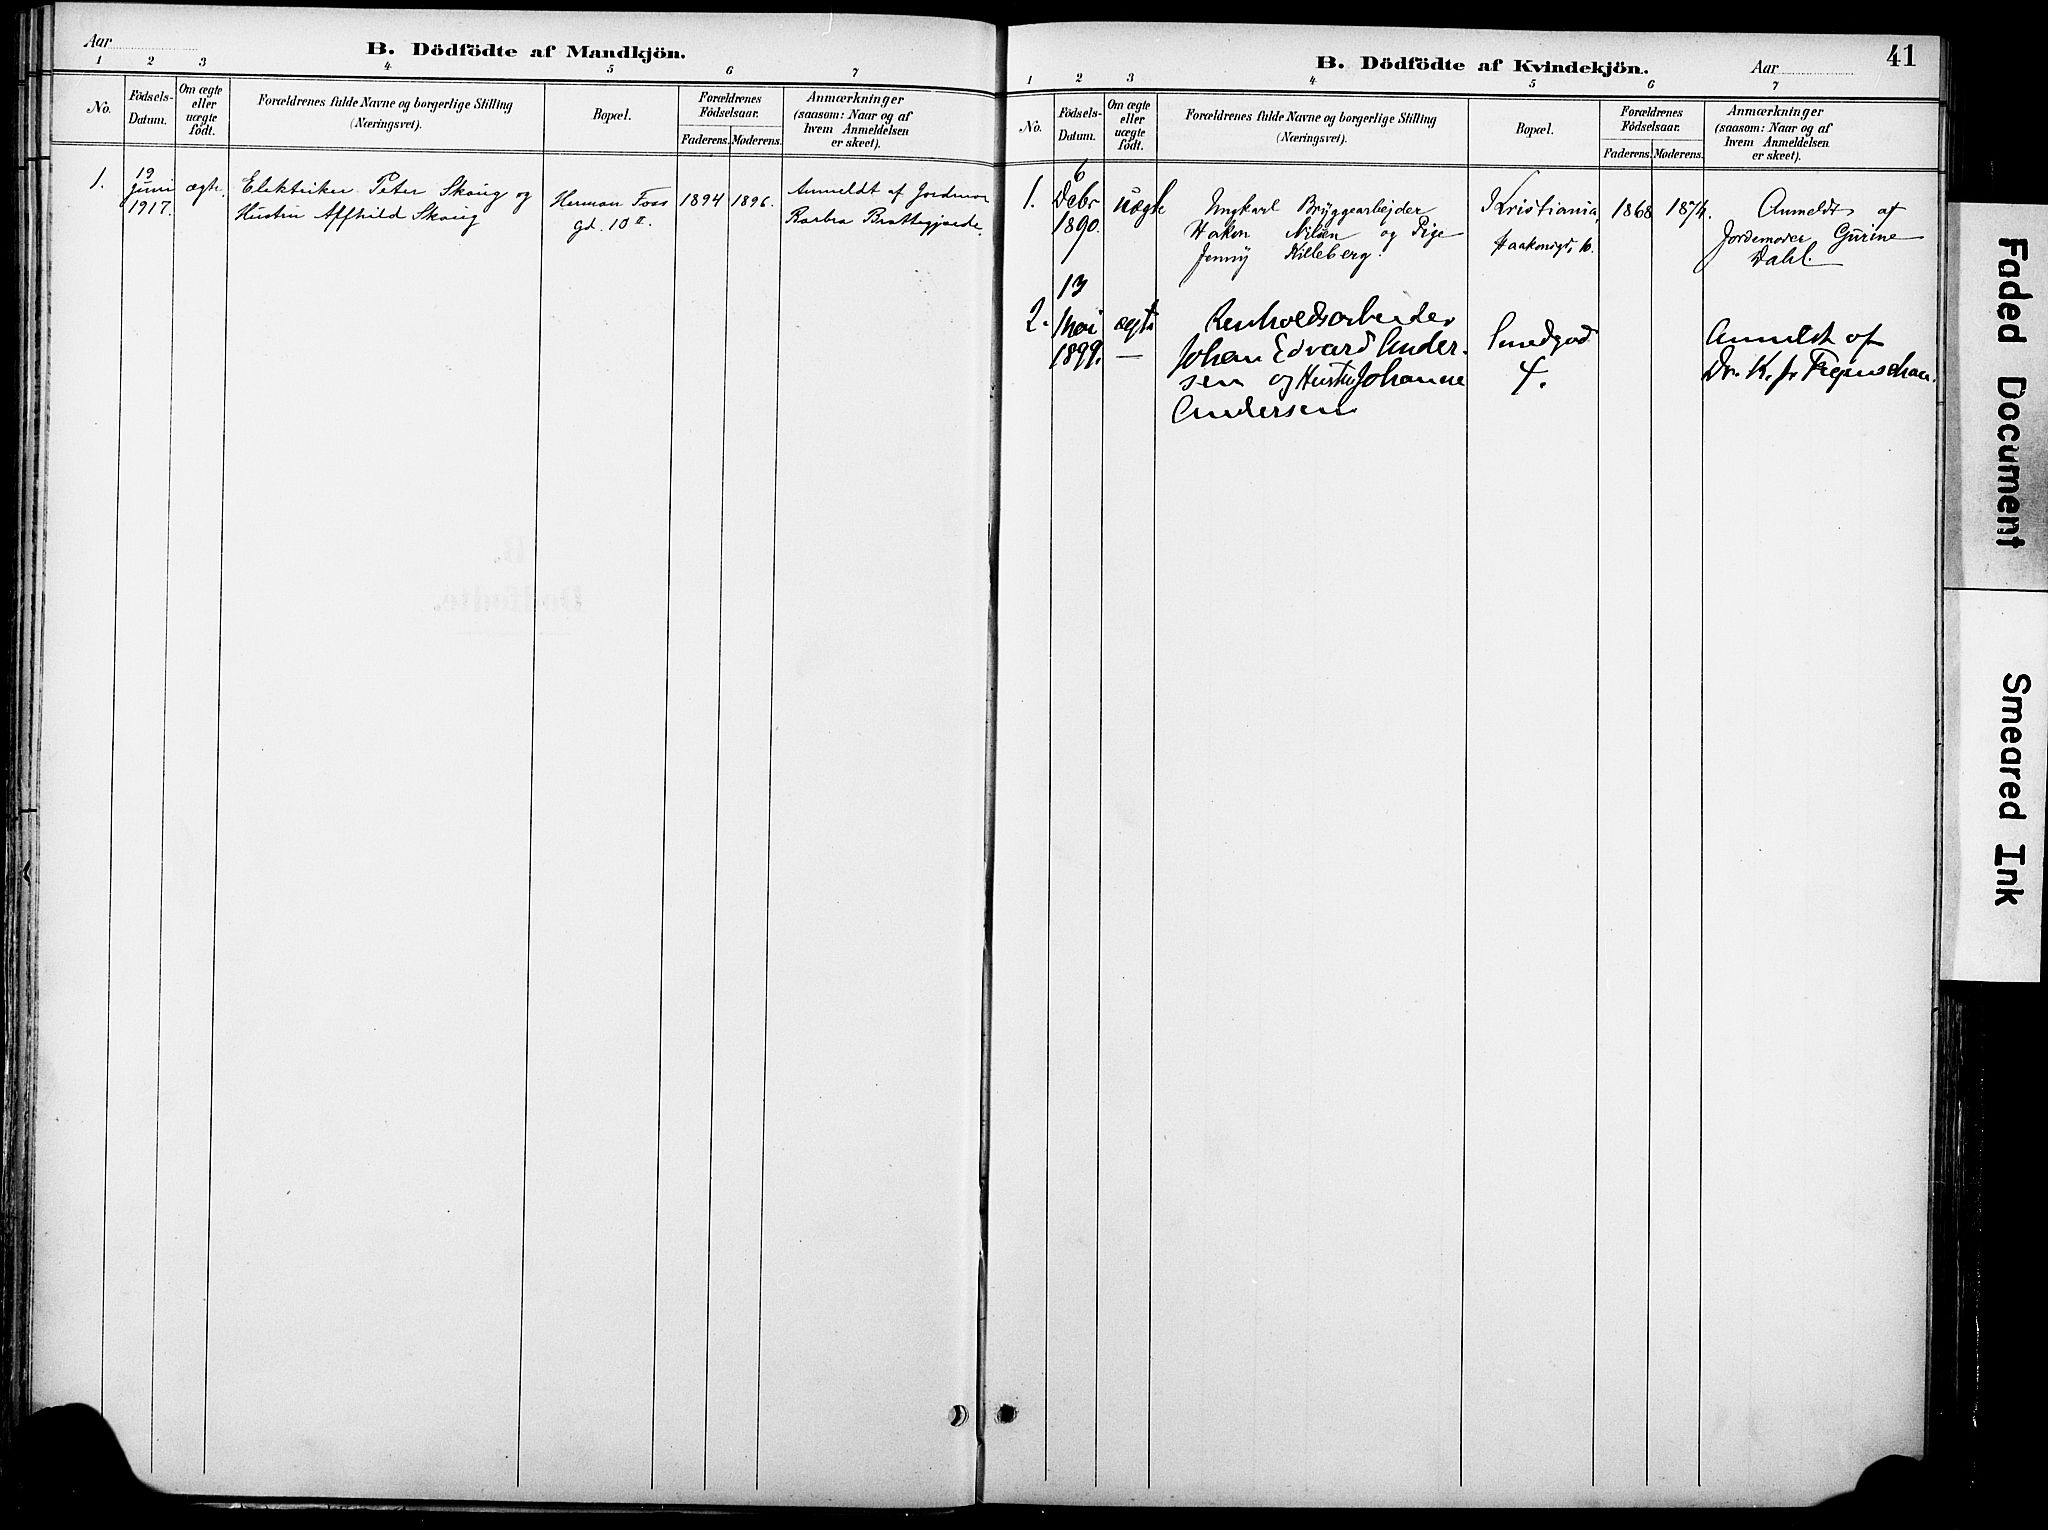 Aar
B. Dödfödte af Mandkjön.
1 2 3 4 5 6 7
No.
Födsels-
Datum.
Om ægte
eller
uægte
födt.
Forældrenes fulde Navne og borgerlige Stilling
(Næringsvei).
Bopæl.
Forældrenes
Födselsaar.
Faderens. Moderens.
Anmærkninger
(saasom: Naar og af
hvem Anmeldelsen
er skeet).
1.
19
Juni
1917.
ægte.
Elektriker Peter Skoug og
Hustru Affhild Skoug
Herman Foss
gd. 10 II.
1894 1896.
Anmeldt af Jordmor
Barbra Brattegjerde.
B.
Dödfödte.
B. Dödfödte af Kvindekjön.
Aar
41
1 2 3 4 5 6 7
No.
Födsels-
Datum.
Om ægte
eller
uægte
födt.
Forældrenes fulde Navne og borgerlige Stilling
(Næringsvei).
Bopæl.
Forældrenes
Födselsaar.
Faderens. Moderens.
Anmærkninger
(saasom: Naar og af
hvem Anmeldelsen
er skeet).
1.
6
Debr
1890.
uægte
Ungkarl Bryggearbejder
Hakon Nilsen og Pige
Jenny Killeberg.
Kristiania,
Haakonsgd.
1868 1874.
Anmeldt af
Jordemoder Gurine
Dahl.
2.
13
Mai
1899.
ægte
Renholdsarbeider
Johan Edvard Ander-
sen og Hustru Johanne
Andersen
Smedgad
4.
Anmeldt af
Dr. K. Fr. Figenschau.
Faded Document
Smeared Ink